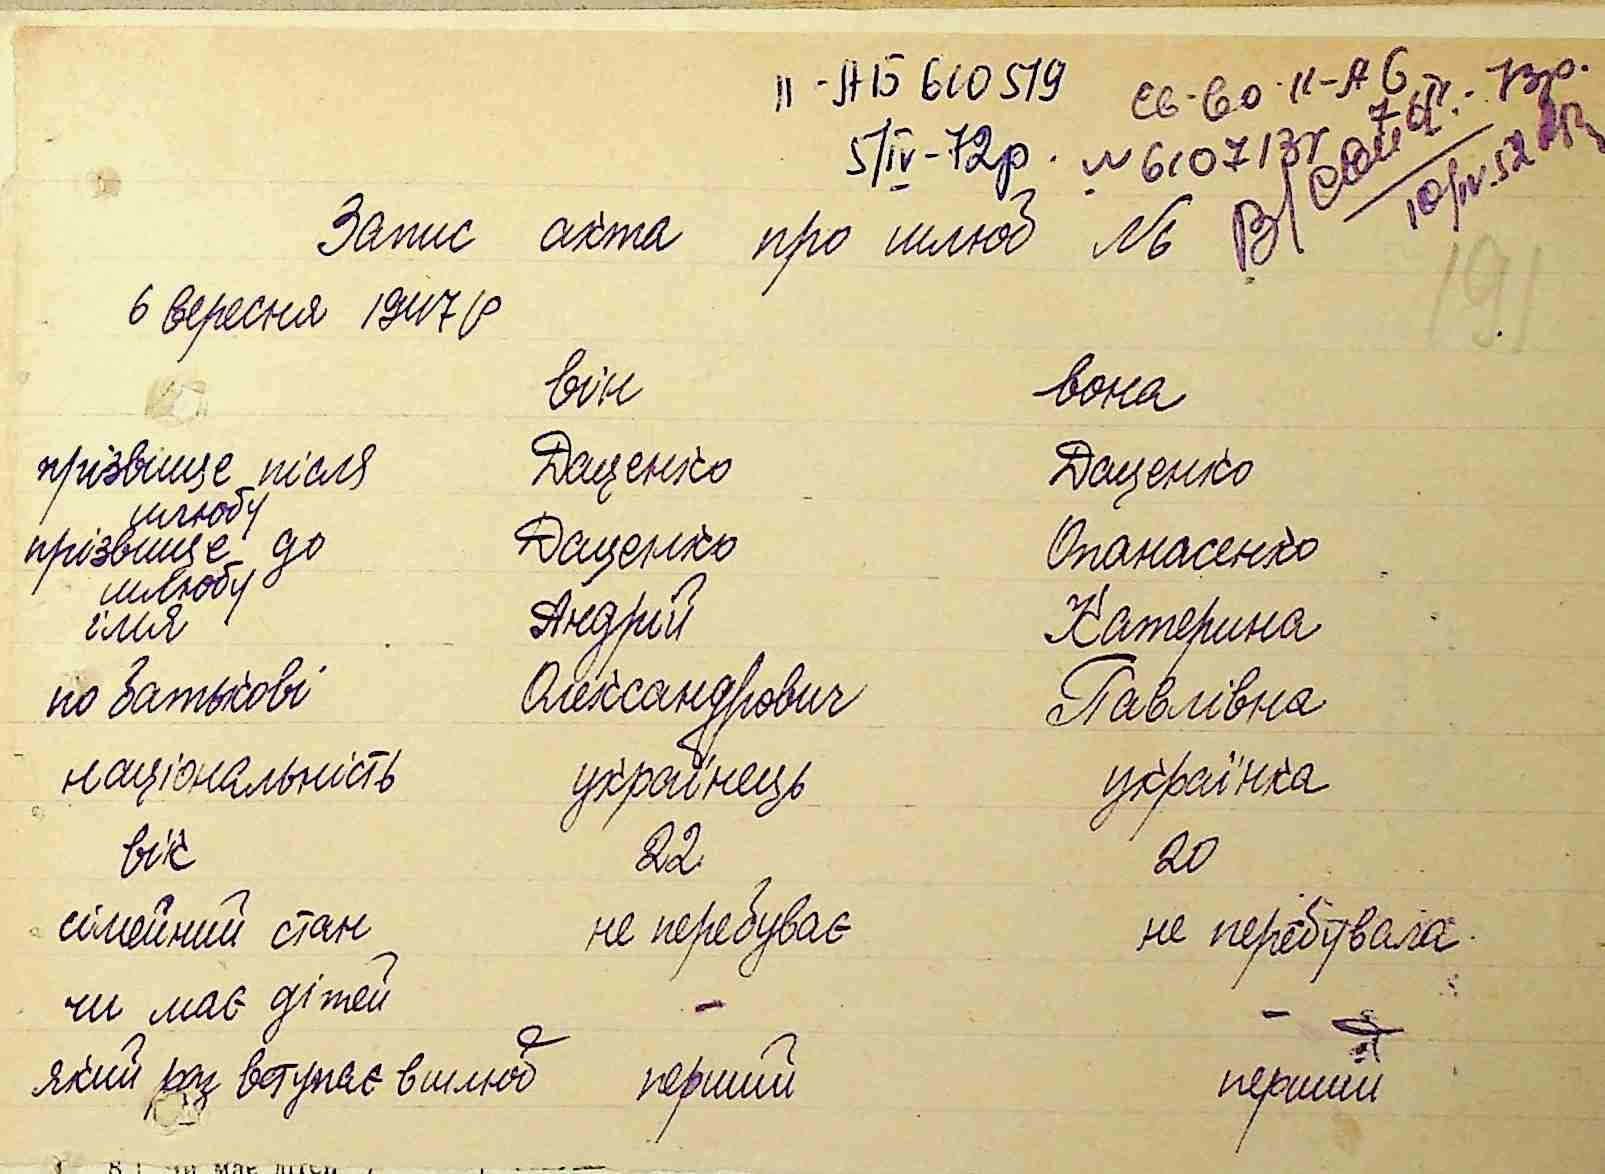 II-АБ 610519 св-во II-АБ
5/IV-72р. № 610713
10/IV.52
Запис акта про шлюб №
191
6 вересня 1947 р
він вона
прізвище після шлюбу Даценко Даценко
прізвище до шлюбу Даценко Опанасенко
імя Андрій Катерина
по батькові Олександрович Павлівна
національність українець українка
вік 22 20
сімейний стан не перебуває не перебувала
чи має дітей - -
який раз вступає в шлюб перший перший